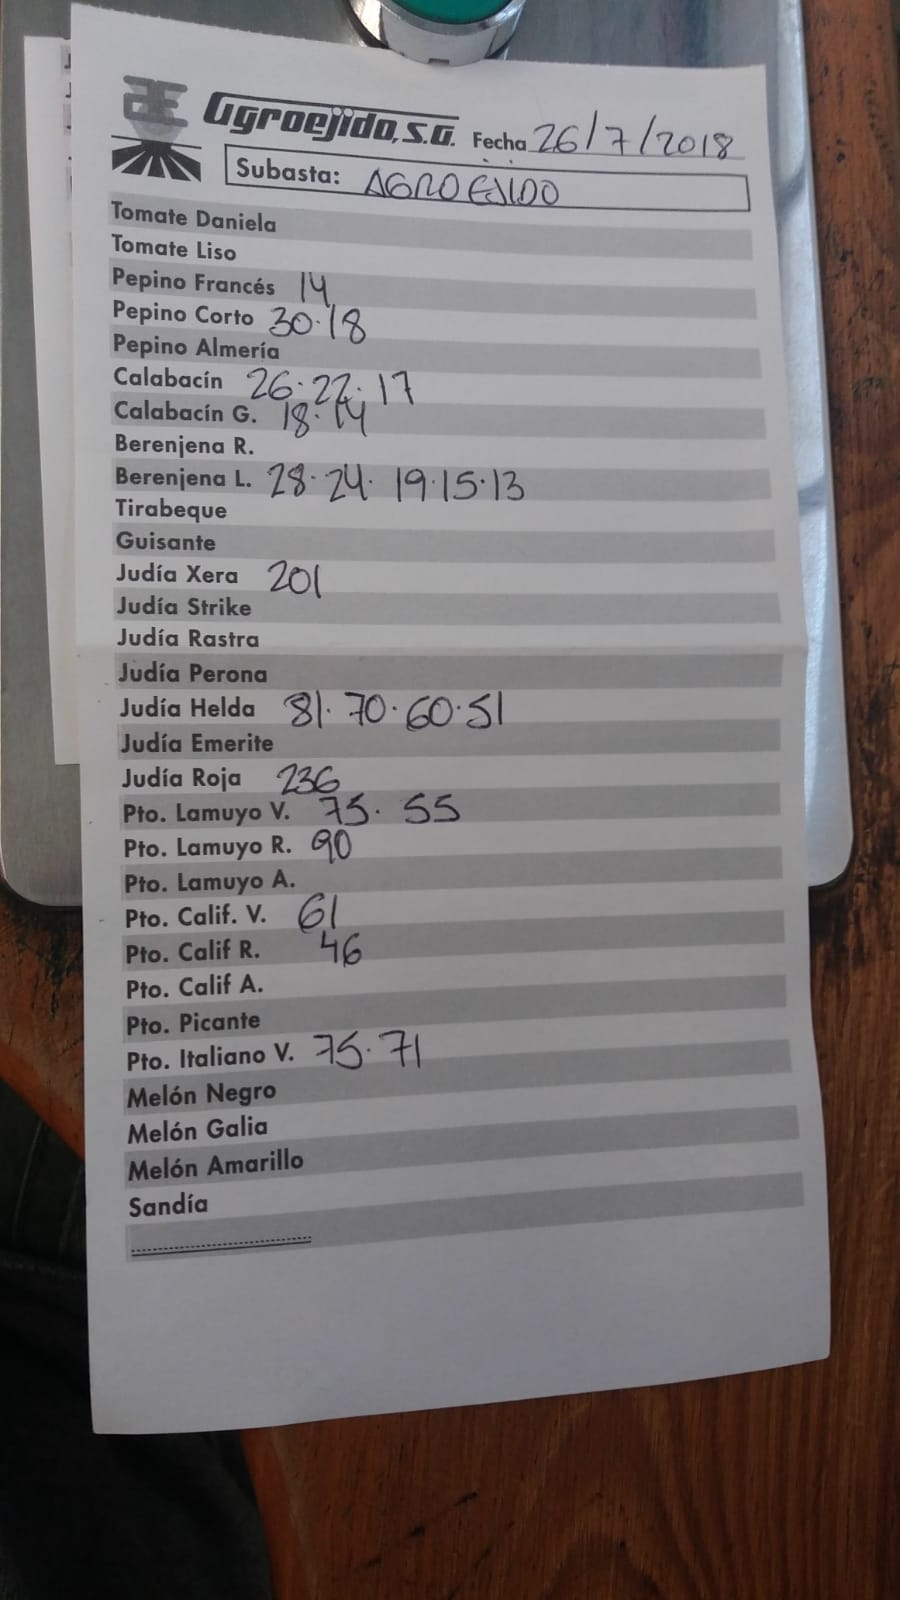 Agroejido, S.A. Fecha 26/7/2018
Subasta: AGROEJIDO
Tomate Daniela
Tomate Liso
Pepino Francés 14
Pepino Corto 30·18
Pepino Almería
Calabacín 26·22·17
Calabacín G. 18·14
Berenjena R.
Berenjena L. 28·24·19·15·13
Tirabeque
Guisante
Judía Xera 201
Judía Strike
Judía Rastra
Judía Perona
Judía Helda 81·70·60·51
Judía Emerite
Judía Roja 236
Pto. Lamuyo V. 75·55
Pto. Lamuyo R. 90
Pto. Lamuyo A.
Pto. Calif. V. 61
Pto. Calif R. 46
Pto. Calif A.
Pto. Picante
Pto. Italiano V. 75·71
Melón Negro
Melón Galia
Melón Amarillo
Sandía